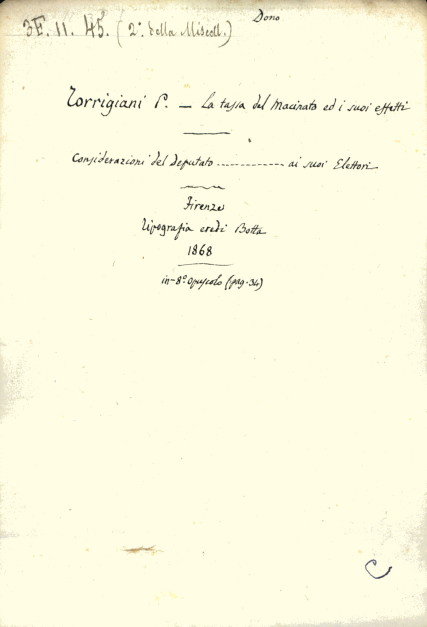 Dono
3F. 11. 45. (2ª. della Miscell.)
Torrigiani P. — La tassa del Macinato ed i suoi effetti
Considerazioni del deputato ------------ ai suoi Elettori
Firenze
Tipografia eredi Botta
1868
in-8º opuscolo (pag. 34)
C